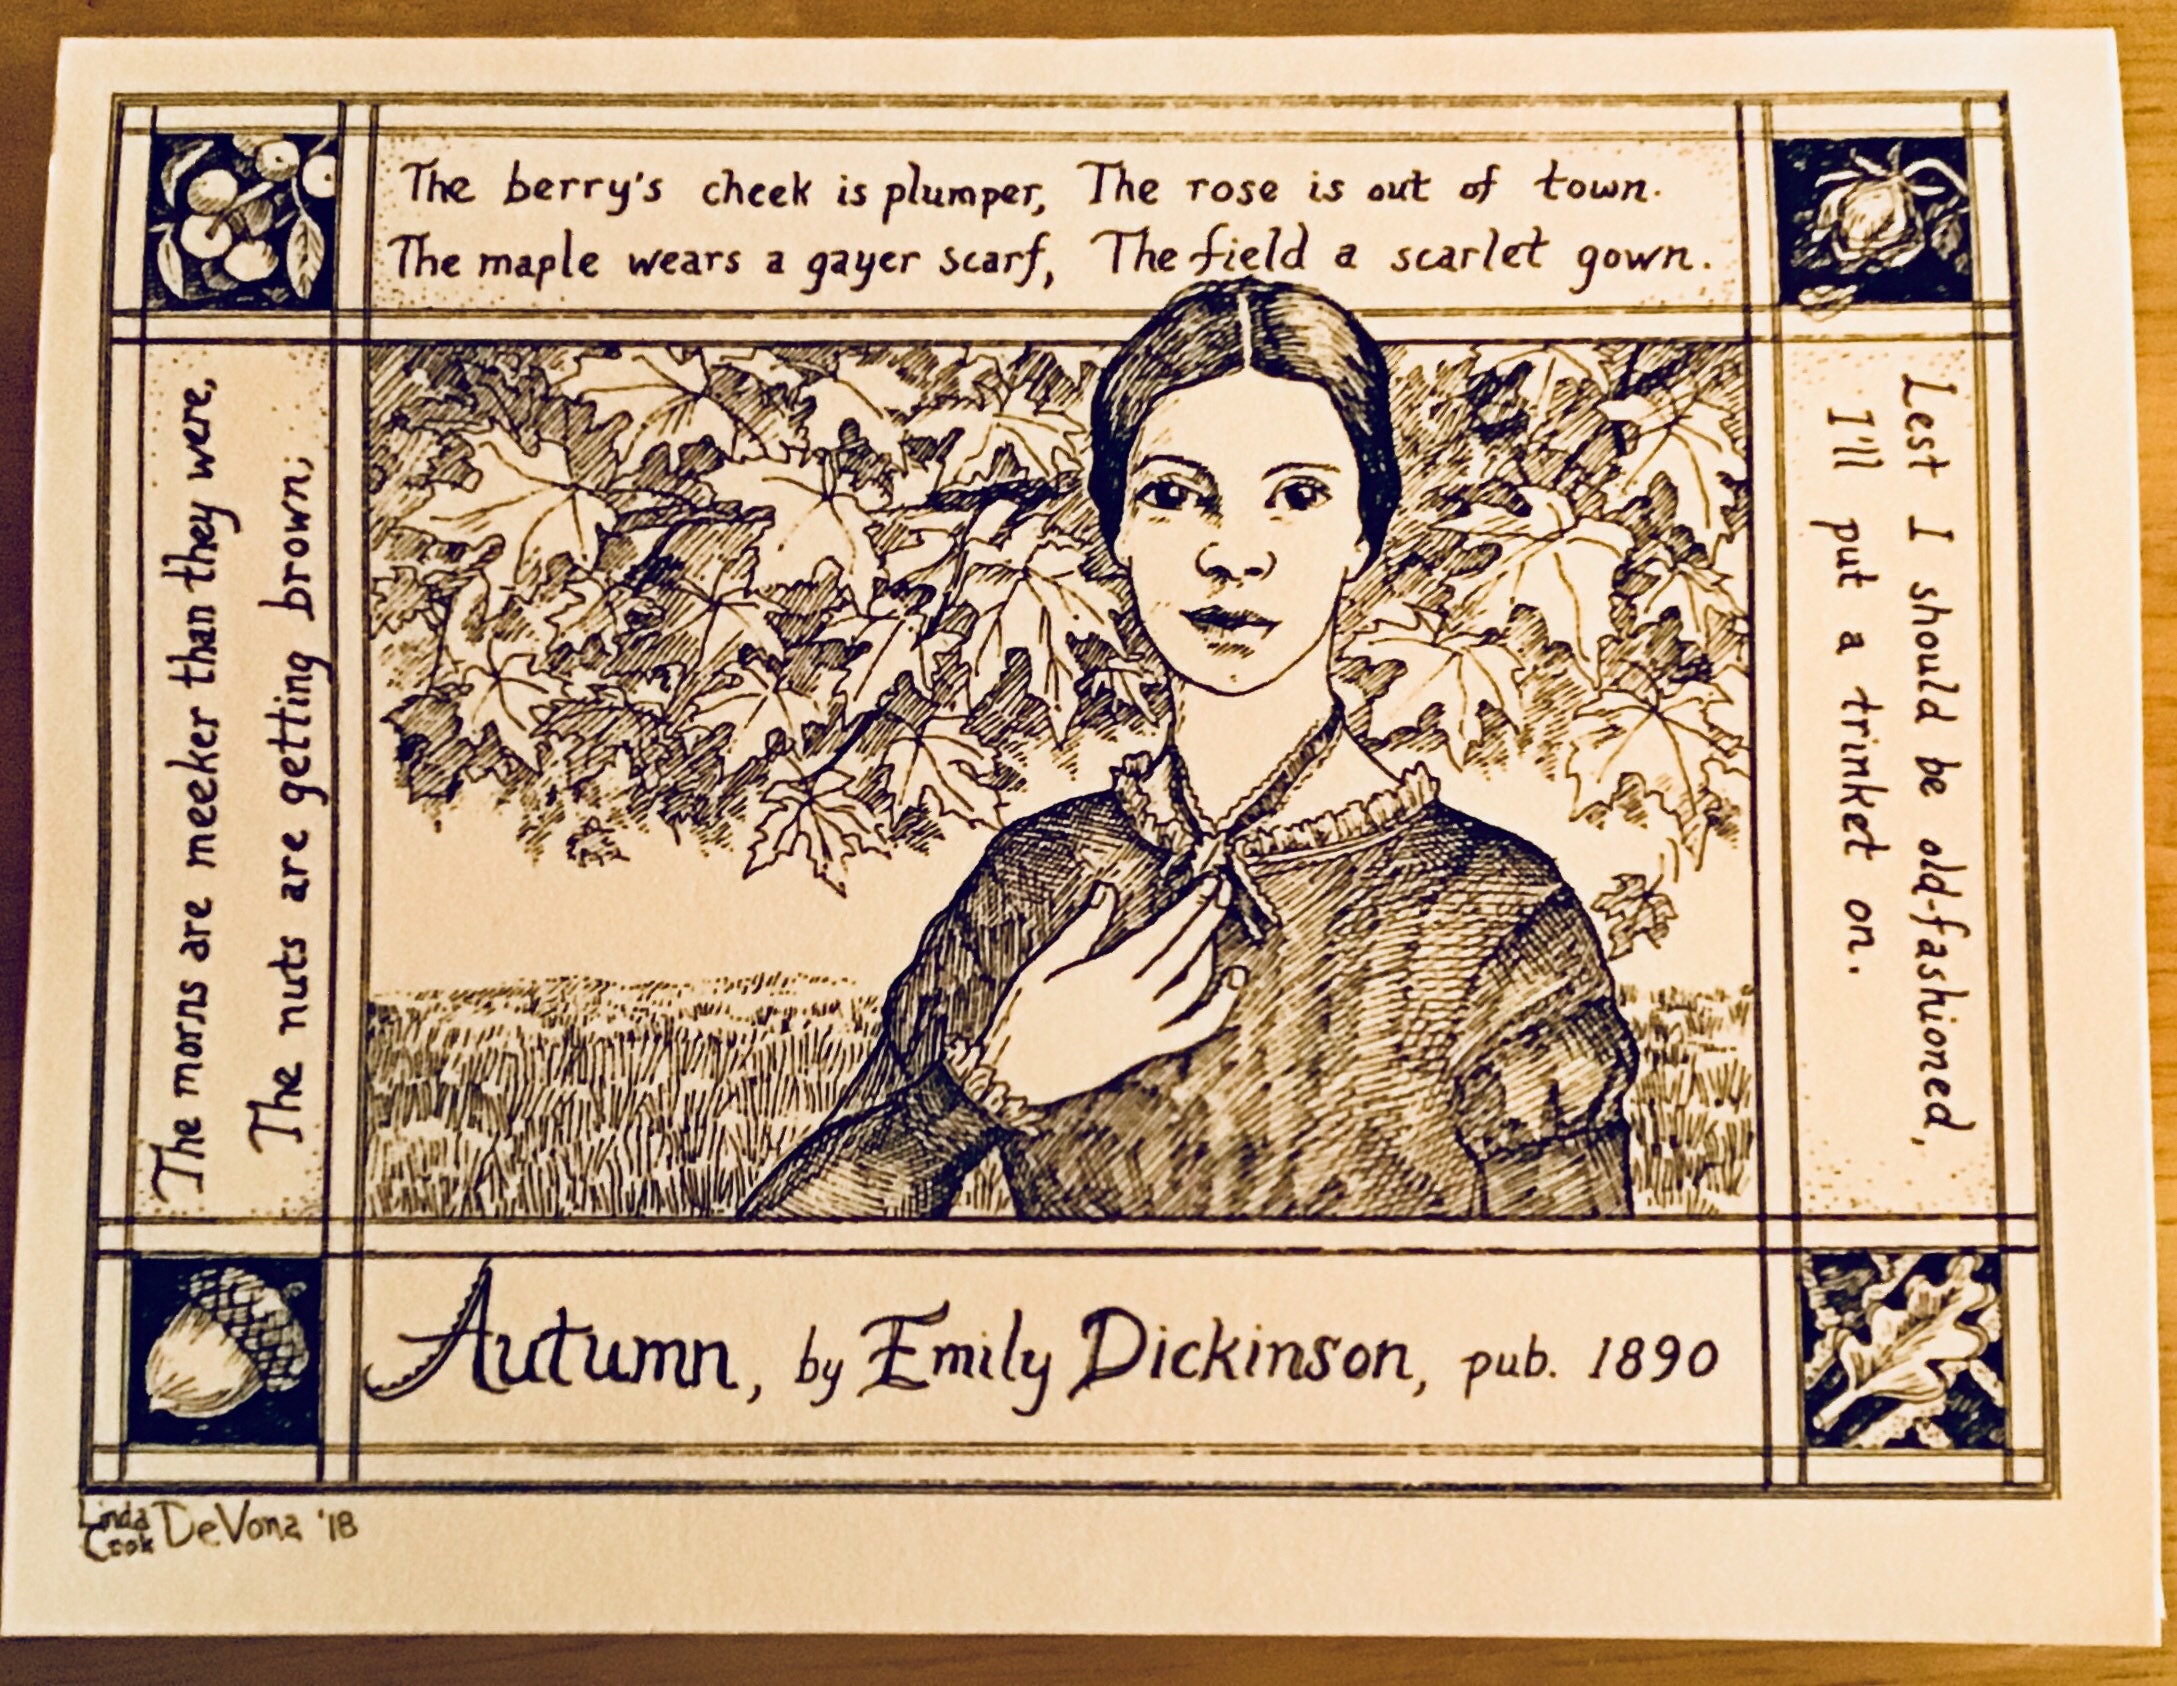 The morns are meeker than they were,
The nuts are getting brown;
The berry's cheek is plumper, The rose is out of town.
The maple wears a gayer scarf, The field a scarlet gown.
Lest I should be old-fashioned,
I'll put a trinket on.
Autumn, by Emily Dickinson, pub. 1890
Linda Cook DeVona '18